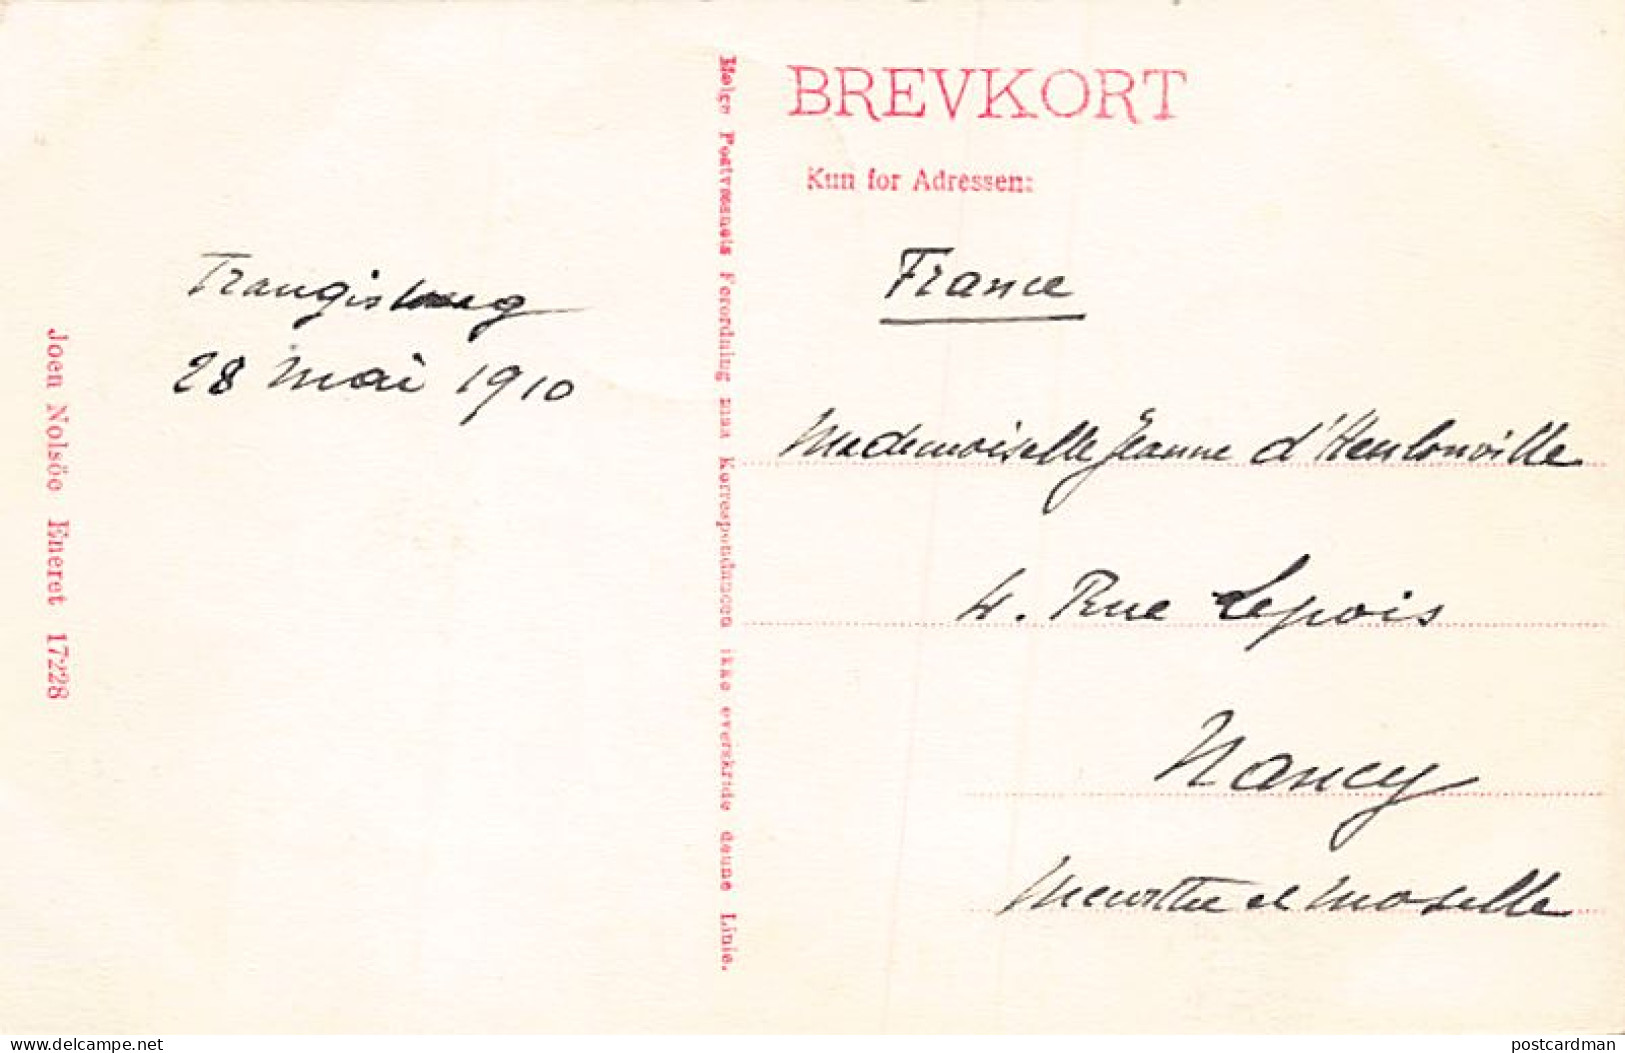 BREVKORT
Kun for Adressen:
Ifølge Postvæsnets Forordning maa Korrespondancen ikke overskride denne Linie.
Joen Nolsöo Eneret 17228
28 mai 1910
France
Mademoiselle Jeanne d'Heulonville
4. Rue Lepois
Nancy
Meurthe et Moselle
www.delcampe.net
postcardman